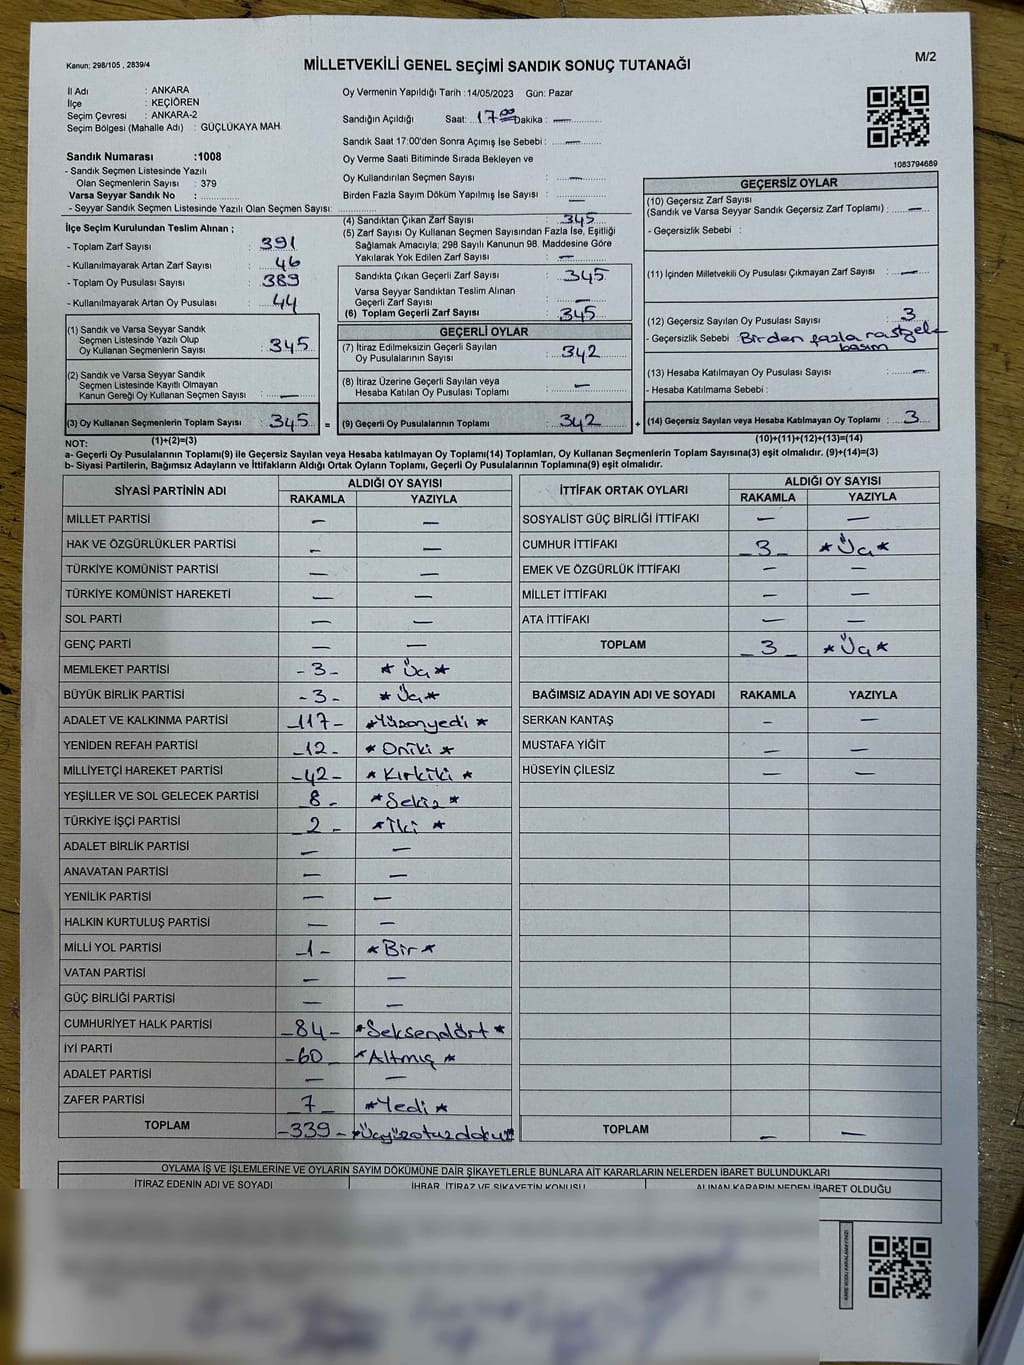 Kanun; 298/105 , 2839/4
MİLLETVEKİLİ GENEL SEÇİMİ SANDIK SONUÇ TUTANAĞI
M/2
İl Adı : ANKARA
İlçe : KEÇİÖREN
Seçim Çevresi : ANKARA-2
Seçim Bölgesi (Mahalle Adı) : GÜÇLÜKAYA MAH.
Sandık Numarası :1008
- Sandık Seçmen Listesinde Yazılı
Olan Seçmenlerin Sayısı : 379
Varsa Seyyar Sandık No :
- Seyyar Sandık Seçmen Listesinde Yazılı Olan Seçmen Sayısı:
Oy Vermenin Yapıldığı Tarih :14/05/2023 Gün: Pazar
Sandığın Açıldığı Saat: 17⁰⁰ Dakika : —
Sandık Saat 17:00'den Sonra Açımış İse Sebebi : —
Oy Verme Saati Bitiminde Sırada Bekleyen ve
Oy Kullandırılan Seçmen Sayısı : —
Birden Fazla Sayım Döküm Yapılmış İse Sayısı : —
1083794689
İlçe Seçim Kurulundan Teslim Alınan ;
- Toplam Zarf Sayısı : 391
- Kullanılmayarak Artan Zarf Sayısı : 46
- Toplam Oy Pusulası : 389
- Kullanılmayarak Artan Oy Pusulası : 44
(1) Sandık ve Varsa Seyyar Sandık
Seçmen Listesinde Yazılı Olup
Oy Kullanan Seçmenlerin Sayısı : 345
(2) Sandık ve Varsa Seyyar Sandık
Seçmen Listesinde Kayıtlı Olmayan
Kanun Gereği Oy Kullanan Seçmen Sayısı : —
(3) Oy Kullanan Seçmenlerin Toplam Sayısı : 345 =
(4) Sandıktan Çıkan Zarf Sayısı : 345
(5) Zarf Sayısı Oy Kullanan Seçmen Sayısından Fazla İse, Eşitliği
Sağlamak Amacıyla; 298 Sayılı Kanunun 98. Maddesine Göre
Yakılarak Yok Edilen Zarf Sayısı : —
Sandıkta Çıkan Geçerli Zarf Sayısı : 345
Varsa Seyyar Sandıktan Teslim Alınan
Geçerli Zarf Sayısı : —
(6) Toplam Geçerli Zarf Sayısı : 345
GEÇERLİ OYLAR
(7) İtiraz Edilmeksizin Geçerli Sayılan
Oy Pusulalarının Sayısı : 342
(8) İtiraz Üzerine Geçerli Sayılan veya
Hesaba Katılan Oy Pusulası Toplamı : —
(9) Geçerli Oy Pusulalarının Toplamı : 342 +
GEÇERSİZ OYLAR
(10) Geçersiz Zarf Sayısı
(Sandık ve Varsa Seyyar Sandık Geçersiz Zarf Toplamı) : —
- Geçersizlik Sebebi :
(11) İçinden Milletvekili Oy Pusulası Çıkmayan Zarf Sayısı : —
(12) Geçersiz Sayılan Oy Pusulası Sayısı : 3
- Geçersizlik Sebebi : Birden fazla rastgele
basım
(13) Hesaba Katılmayan Oy Pusulası Sayısı : —
- Hesaba Katılmama Sebebi :
(14) Geçersiz Sayılan veya Hesaba Katılmayan Oy Toplamı : 3
NOT: (1)+(2)=(3) (10)+(11)+(12)+(13)=(14)
a- Geçerli Oy Pusulalarının Toplamı(9) ile Geçersiz Sayılan veya Hesaba katılmayan Oy Toplamı(14) Toplamları, Oy Kullanan Seçmenlerin Toplam Sayısına(3) eşit olmalıdır. (9)+(14)=(3)
b- Siyasi Partilerin, Bağımsız Adayların ve İttifakların Aldığı Ortak Oyların Toplamı, Geçerli Oy Pusulalarının Toplamına(9) eşit olmalıdır.
SİYASİ PARTİNİN ADI ALDIĞI OY SAYISI
RAKAMLA YAZIYLA
MİLLET PARTİSİ — —
HAK VE ÖZGÜRLÜKLER PARTİSİ — —
TÜRKİYE KOMÜNİST PARTİSİ — —
TÜRKİYE KOMÜNİST HAREKETİ — —
SOL PARTİ — —
GENÇ PARTİ — —
MEMLEKET PARTİSİ -3- * Üç *
BÜYÜK BİRLİK PARTİSİ -3- * Üç *
ADALET VE KALKINMA PARTİSİ -117- * Yüzonyedi *
YENİDEN REFAH PARTİSİ -12- * Oniki *
MİLLİYETÇİ HAREKET PARTİSİ -42- * Kırkiki *
YEŞİLLER VE SOL GELECEK PARTİSİ -8- * Sekiz *
TÜRKİYE İŞÇİ PARTİSİ -2- * İki *
ADALET BİRLİK PARTİSİ — —
ANAVATAN PARTİSİ — —
YENİLİK PARTİSİ — —
HALKIN KURTULUŞ PARTİSİ — —
MİLLİ YOL PARTİSİ -1- * Bir *
VATAN PARTİSİ — —
GÜÇ BİRLİĞİ PARTİSİ — —
CUMHURİYET HALK PARTİSİ -84- * Seksendört *
İYİ PARTİ -60- * Altmış *
ADALET PARTİSİ — —
ZAFER PARTİSİ -7- * Yedi *
TOPLAM -339- * Üçyüzotuzdokuz *
İTTİFAK ORTAK OYLARI ALDIĞI OY SAYISI
RAKAMLA YAZIYLA
SOSYALİST GÜÇ BİRLİĞİ İTTİFAKI — —
CUMHUR İTTİFAKI -3- * Üç *
EMEK VE ÖZGÜRLÜK İTTİFAKI — —
MİLLET İTTİFAKI — —
ATA İTTİFAKI — —
TOPLAM -3- * Üç *
BAĞIMSIZ ADAYIN ADI VE SOYADI RAKAMLA YAZIYLA
SERKAN KANTAŞ — —
MUSTAFA YİĞİT — —
HÜSEYİN ÇİLESİZ — —
TOPLAM — —
OYLAMA İŞ VE İŞLEMLERİNE VE OYLARIN SAYIM DÖKÜMÜNE DAİR ŞİKAYETLERLE BUNLARA AİT KARARLARIN NELERDEN İBARET BULUNDUKLARI
İTİRAZ EDENİN ADI VE SOYADI İHBAR, İTİRAZ VE ŞİKAYETİN KONUSU ALINAN KARARIN NEDEN İBARET OLDUĞU